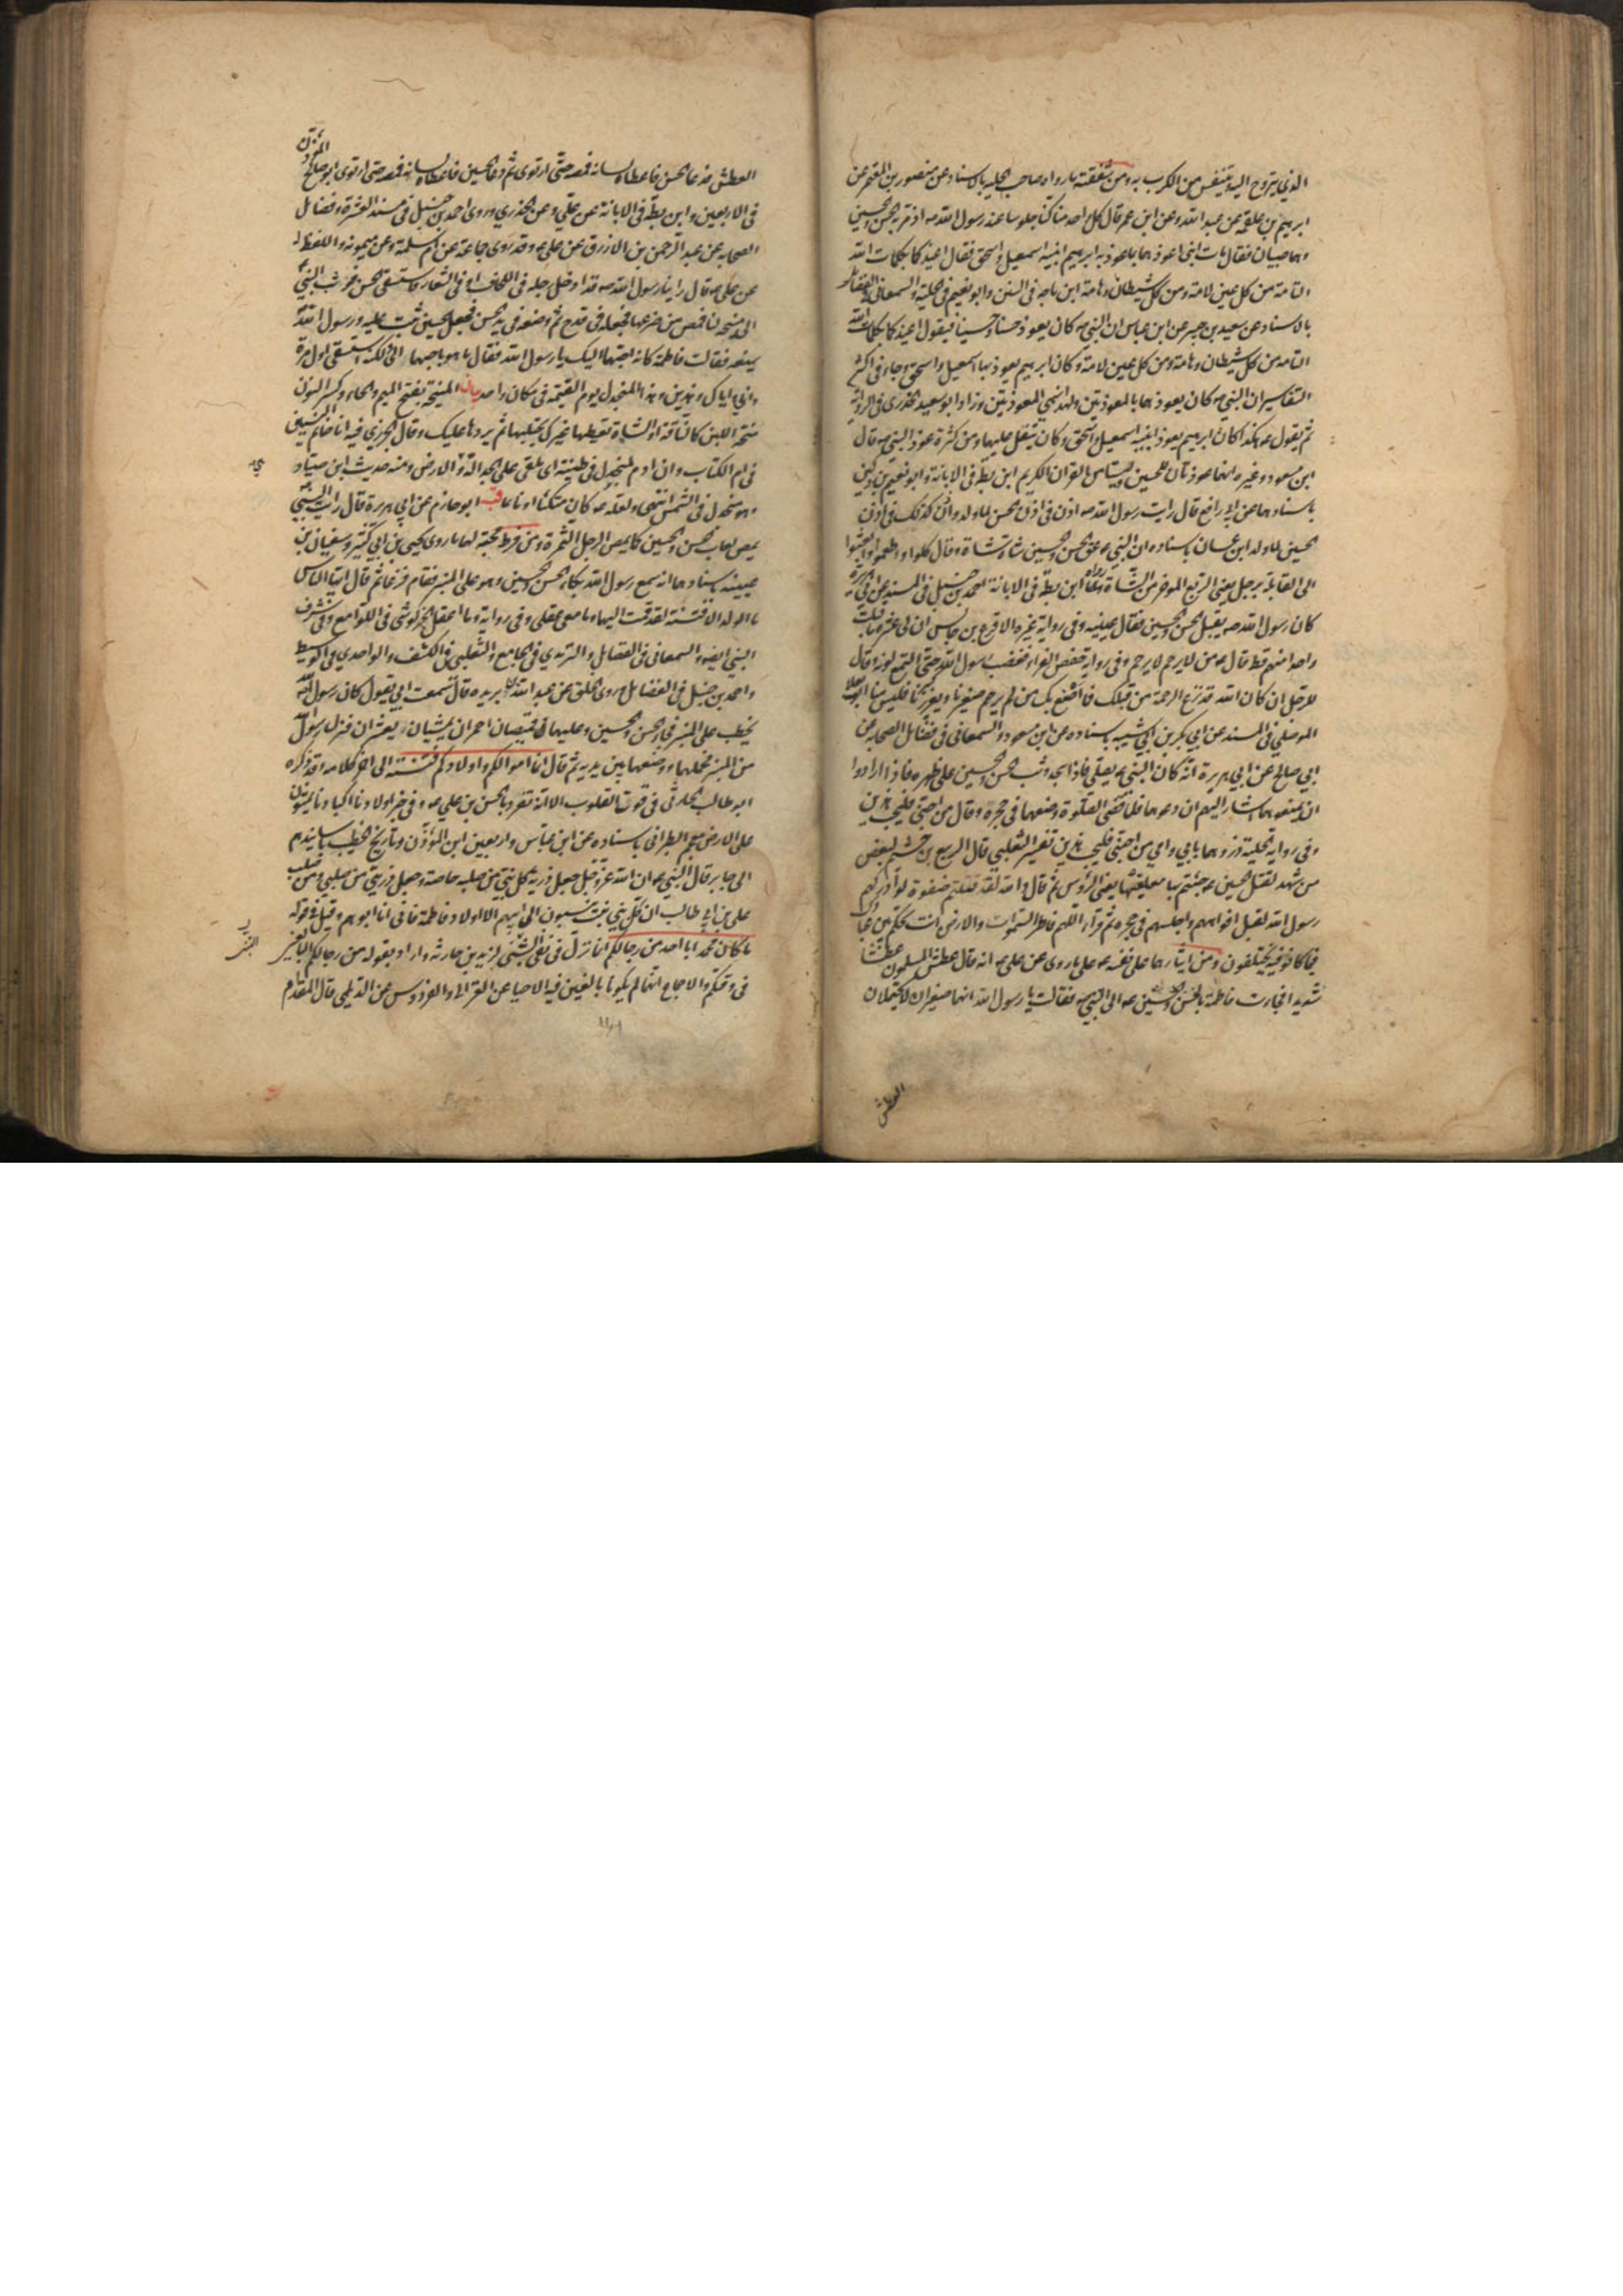 الذي يتروح اليه ويتنفس من الكرب به ومن شفقته ما رواه صاحب الحليه بالاسناد عن منصور بن المعتمر عن
ابرهيم بن علقمة عن عبد الله وعن ابن عمر قال كل احد منا كنا جلوسا عند رسول الله ص اذ مر به الحسن والحسين
وهما صبيان فقال هات ابني اعوذهما بما عوذ به ابرهيم ابنيه اسمعيل واسحق فقال اعيذكما بكلمات الله
التامة من كل عين لامة ومن كل شيطان وهامة ابن ماجه في السنن وابو نعيم في الحلية والسمعاني في الفضائل
بالاسناد عن سعيد بن جبير عن ابن عباس ان النبي ص كان يعوذ حسنا وحسينا فيقول اعيذكما بكلمات الله
التامه من كل شيطان وهامة ومن كل عين لامة وكان ابرهيم يعوذ بها اسمعيل واسحق وجاء في اكثر
التفاسير ان النبي ص كان يعوذهما بالمعوذتين ولهذا سمي المعوذتين وزاد ابو سعيد الخدري في الرواية
ثم يقول ع هكذا كان ابرهيم يعوذ ابنيه اسمعيل واسحق وكان يتفل عليهما ومن كثرة عوذ النبي ص قال
ابن مسعود وغيره انهما عوذتان للحسين وليستا من القران الكريم ابن بطه في الابانة وابو نعيم بن دكين
باسنادهما عن ابي رافع قال رايت رسول الله ص اذن في اذن الحسن لما ولد واذن كذلك في اذن
الحسين لما ولد ابن غسان باسناده ان النبي ص عق الحسن والحسين شاة شاة وقال كلوا واطعموا وابعثوا
الى القابلة برجل يعني الربع الموخر من الشاة رواه ابن بطه في الابانة احمد بن حنبل في المسند عن ابي هريرة
كان رسول الله ص يقبل الحسن والحسين فقال عيينه وفي رواية غيره الاقرع بن حابس ان لي عشرة ما قبلت
واحدا منهم قط قال ع من لا يرحم لا يرحم وفي رواية حفص الفراء فغضب رسول الله حتى التمع لونه وقال
للرجل ان كان الله قد نزع الرحمة من قلبك فما اصنع بك من لم يرحم صغيرنا ويعزز كبيرنا فليس منا ابو يعلا
الموصلي في المسند عن ابي بكر بن ابي شيبه باسناده عن ابن مسعود والسمعاني في فضائل الصحابه عن
ابي صالح عن ابي هريرة انه كان النبي ص يصلي فاذا سجد وثب الحسن والحسين على ظهره فاذا ارادوا
ان يمنعوهما اشار اليهم ان دعوهما فلما قضى الصلوة وضعهما في حجره وقال من احبني فليحب هذين
وفي رواية الحلية ذروهما بابي وامي من احبني فليحب هذين تفسير الثعلبي قال الربيع بن خثيم لبعض
من شهد لقتل الحسين ع جئتم بها معلقيها يعني الرؤس ثم قال والله لقد قتلتم صفوة لو ادركهم
رسول الله لقبل افواههم واجلسهم في حجره ثم قراء اللهم فاطر السموات والارض انت تحكم بين عبادك
فيما كانوا فيه يختلفون ومن ايثارهما على نفسه ع ما روى عن علي ع انه قال عطش المسلمون عطشا
شديدا فجاءت فاطمة بالحسن والحسين ع الى النبي ص فقالت يا رسول الله انهما صغيران لا يحتملان
العطش
العطش فدعا الحسن فاعطاه لسانه فمصه حتى ارتوى ثم دعا الحسين فاعطاه لسانه فمصه حتى ارتوى ابو صالح المؤذن
في الاربعين وابن بطه في الابانة عن علي وعن الخدري وروى احمد بن حنبل في مسند العشرة وفضائل
الصحابه عن عبد الرحمن بن الازرق عن علي ع وقد روى جماعة عن ام سلمة وعن ميمونه واللفظ له
عن علي ع قال راينا رسول الله ص قد ادخل رجله في اللحاف او في الشعار فاستسقى الحسن فوثب النبي
الى منيحة لنا فمص من ضرعها فجعله في قدح ثم وضعه في يد الحسن فجعل الحسين يثب عليه ورسول الله
يمنعه فقالت فاطمه كانه احبهما اليك يا رسول الله فقال ما هو باحبهما الي ولكنه استسقى اول مرة
واني واياك وهذين وهذا المنجدل يوم القيمة في مكان واحد بيان المنيحة بفتح الميم والحاء وكسر النون
منحة اللبن كالناقة او الشاة تعطيها غيرك يحتلبها ثم يردها عليك وقال الجزري فيه انا خاتم النبيين
في ام الكتاب وان ادم لمنجدل في طينته اي ملقى على الجدالة والارض ومنه حديث ابن صياد
وهو منجدل في الشمس انتهى ولعله ص كان متكئا او نائما قب ابو حازم عن ابي هريرة قال رايت النبي
يمص لعاب الحسن والحسين كما يمص الرجل التمرة ومن فرط محبته لهما ما روى يحيى بن ابي كثير وسفيان بن
عيينه باسنادهما انه سمع رسول الله بكاء الحسن والحسين وهو على المنبر فقام فزعا ثم قال ايها الناس
ما الولد الا فتنة لقد قمت اليهما وما معي عقلي وفي رواية وما اعقل الخركوشي في اللوامع وفي شرف
النبي ايضا والسمعاني في الفضائل والترمذي في الجامع والثعلبي في الكشف والواحدي في الوسيط
واحمد بن حنبل في الفضائل وروى الخلق عن عبد الله بن بريده قال سمعت ابي يقول كان رسول الله
يخطب على المنبر فجاء الحسن والحسين وعليهما قميصان احمران يمشيان ويعثران فنزل رسول الله
من المنبر فحملهما ووضعهما بين يديه ثم قال انما اموالكم واولادكم فتنة الى اخر كلامه وقد ذكره
ابو طالب الحارثي في قوت القلوب الا انه تفرد بالحسن بن علي ع وفي خبر اولادنا اكبادنا يمشون
على الارض معجم الطبراني باسناده عن ابن عباس واربعين ابن المؤذن وتاريخ الخطيب باسانيدهم
الى جابر قال النبي ص ان الله عز وجل جعل ذرية كل نبي من صلبه خاصة وجعل ذريتي من صلبي ومن صلب
علي بن ابي طالب ان كل بني بنت ينسبون الى ابيهم الا اولاد فاطمة فاني انا ابوهم وقيل في قوله
ما كان محمد ابا احد من رجالكم انما نزل في نفي التبني لزيد بن حارثه واراد بقوله من رجالكم البالغين
في وقتكم والاجماع انهما لم يكونا بالغين فيه الاحيا عن الغزالي والفردوس عن الديلمي قال المقدام